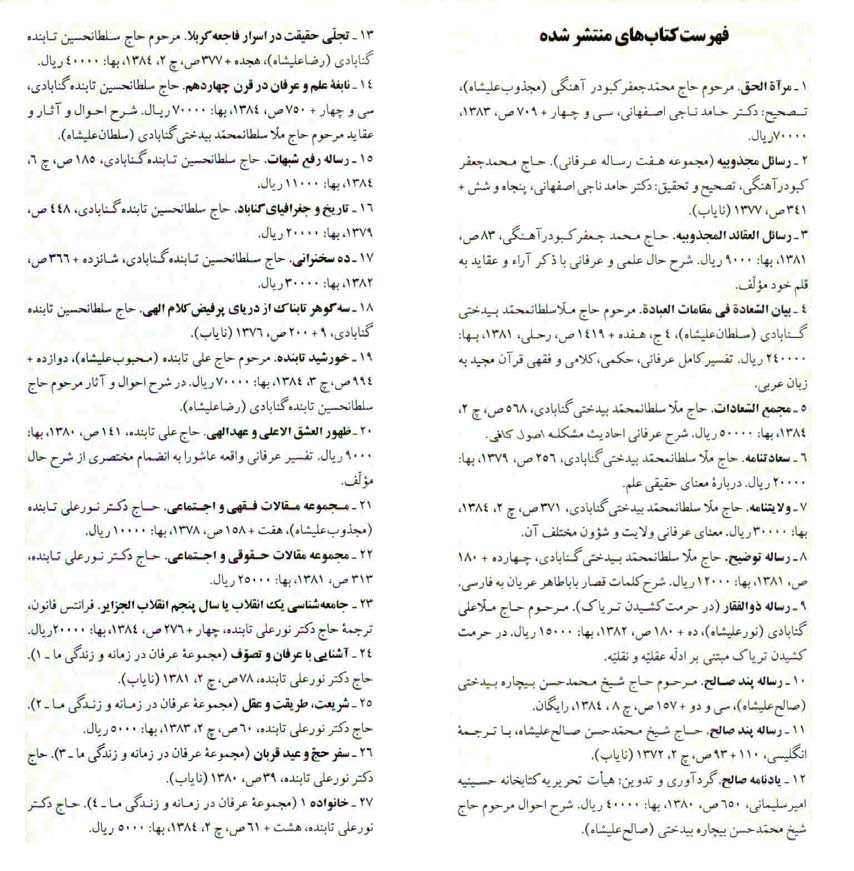 فهرست کتاب‌های منتشر شده
۱ ـ مرآة الحق. مرحوم حاج محمّدجعفر کبودر آهنگی (مجذوب‌علیشاه)،
تصحیح: دکتر حامد ناجی اصفهانی، سی و چهار + ۷۰۹ ص، ۱۳۸۳،
۷۰۰۰۰ ریال.
۲ ـ رسائل مجذوبیه (مجموعه هفت رساله عرفانی). حاج محمدجعفر
کبودرآهنگی، تصحیح و تحقیق: دکتر حامد ناجی اصفهانی، پنجاه و شش +
۳۴۱ ص، ۱۳۷۷ (نایاب).
۳ ـ رسائل العقائد المجذوبیه. حاج محمد جعفر کبودرآهنگی، ۸۳ ص،
۱۳۸۱، بها: ۹۰۰۰ ریال. شرح حال علمی و عرفانی با ذکر آراء و عقاید به
قلم خود مؤلّف.
۴ ـ بیان السّعادة فی مقامات العبادة. مرحوم حاج ملّاسلطانمحمّد بیدختی
گنابادی (سلطان‌علیشاه)، ۴ ج، هفده + ۱۴۱۹ ص، رحلی، ۱۳۸۱، بها:
۲۴۰۰۰۰ ریال. تفسیر کامل عرفانی، حکمی، کلامی و فقهی قرآن مجید به
زبان عربی.
۵ ـ مجمع السّعادات. حاج ملّا سلطانمحمّد بیدختی گنابادی، ۵۶۸ ص، چ ۲،
۱۳۸۴، بها: ۵۰۰۰۰ ریال. شرح عرفانی احادیث مشکله اصول کافی.
۶ ـ سعادتنامه. حاج ملّا سلطانمحمّد بیدختی گنابادی، ۲۵۶ ص، ۱۳۷۹، بها:
۲۰۰۰۰ ریال. دربارهٔ معنای حقیقی علم.
۷ ـ ولایتنامه. حاج ملّا سلطانمحمّد بیدختی گنابادی، ۳۷۱ ص، چ ۲، ۱۳۸۴،
بها: ۳۰۰۰۰ ریال. معنای عرفانی ولایت و شؤون مختلف آن.
۸ ـ رساله توضیح. حاج ملّا سلطانمحمّد بیدختی گنابادی، چهارده + ۱۸۰
ص، ۱۳۸۱، بها: ۱۲۰۰۰ ریال. شرح کلمات قصار باباطاهر عریان به فارسی.
۹ ـ رساله ذوالفقار (در حرمت کشیدن تریاک). مرحوم حاج ملّاعلی
گنابادی (نورعلیشاه)، ده + ۱۸۰ ص، ۱۳۸۲، بها: ۱۵۰۰۰ ریال. در حرمت
کشیدن تریاک مبتنی بر ادلّه عقلیّه و نقلیّه.
۱۰ ـ رساله پند صالح. مرحوم حاج شیخ محمدحسن بیچاره بیدختی
(صالح‌علیشاه)، سی و دو + ۱۵۷ ص، چ ۸، ۱۳۸۴، رایگان.
۱۱ ـ رساله پند صالح. حاج شیخ محمّدحسن صالح‌علیشاه، با ترجمهٔ
انگلیسی، ۱۱۰ + ۹۳ ص، چ ۲، ۱۳۷۲ (نایاب).
۱۲ ـ یادنامه صالح. گردآوری و تدوین: هیأت تحریریه کتابخانه حسینیه
امیرسلیمانی، ۶۵۰ ص، ۱۳۸۰، بها: ۴۰۰۰۰ ریال. شرح احوال مرحوم حاج
شیخ محمّدحسن بیچاره بیدختی (صالح‌علیشاه).
۱۳ ـ تجلّی حقیقت در اسرار فاجعه کربلا. مرحوم حاج سلطانحسین تابنده
گنابادی (رضاعلیشاه)، هجده + ۳۷۷ ص، چ ۲، ۱۳۸۴، بها: ۴۰۰۰۰ ریال.
۱۴ ـ نابغهٔ علم و عرفان در قرن چهاردهم. حاج سلطانحسین تابنده گنابادی،
سی و چهار + ۷۵۰ ص، ۱۳۸۴، بها: ۷۰۰۰۰ ریال. شرح احوال و آثار و
عقاید مرحوم حاج ملّا سلطانمحمّد بیدختی گنابادی (سلطان‌علیشاه).
۱۵ ـ رساله رفع شبهات. حاج سلطانحسین تابنده گنابادی، ۱۸۵ ص، چ ۶،
۱۳۸۴، بها: ۱۱۰۰۰ ریال.
۱۶ ـ تاریخ و جغرافیای گناباد. حاج سلطانحسین تابنده گنابادی، ۴۴۸ ص،
۱۳۷۹، بها: ۲۰۰۰۰ ریال.
۱۷ ـ ده سخنرانی. حاج سلطانحسین تابنده گنابادی، شانزده + ۳۶۶ ص،
۱۳۸۲، بها: ۳۰۰۰۰ ریال.
۱۸ ـ سه گوهر تابناک از دریای پرفیض کلام الهی. حاج سلطانحسین تابنده
گنابادی، ۹ + ۲۰۰ ص، ۱۳۷۶ (نایاب).
۱۹ ـ خورشید تابنده. مرحوم حاج علی تابنده (محبوب‌علیشاه)، دوازده +
۹۹۴ ص، چ ۳، ۱۳۸۴، بها: ۷۰۰۰۰ ریال. در شرح احوال و آثار مرحوم حاج
سلطانحسین تابنده گنابادی (رضاعلیشاه).
۲۰ ـ ظهور العشق الاعلی و عهد الهی. حاج علی تابنده، ۱۴۱ ص، ۱۳۸۰، بها:
۹۰۰۰ ریال. تفسیر عرفانی واقعه عاشورا به انضمام مختصری از شرح حال
مؤلّف.
۲۱ ـ مجموعه مقالات فقهی و اجتماعی. حاج دکتر نورعلی تابنده
(مجذوب‌علیشاه)، هفت + ۱۵۸ ص، ۱۳۷۸، بها: ۱۰۰۰۰ ریال.
۲۲ ـ مجموعه مقالات حقوقی و اجتماعی. حاج دکتر نورعلی تابنده،
۳۱۳ ص، ۱۳۸۱، بها: ۲۵۰۰۰ ریال.
۲۳ ـ جامعه‌شناسی یک انقلاب یا سال پنجم انقلاب الجزایر. فرانتس فانون،
ترجمهٔ حاج دکتر نورعلی تابنده، چهار + ۲۷۶ ص، ۱۳۸۴، بها: ۲۰۰۰۰ ریال.
۲۴ ـ آشنایی با عرفان و تصوّف (مجموعهٔ عرفان در زمانه و زندگی ما ـ ۱).
حاج دکتر نورعلی تابنده، ۷۸ ص، چ ۲، ۱۳۸۱ (نایاب).
۲۵ ـ شریعت، طریقت و عقل (مجموعهٔ عرفان در زمانه و زندگی ما ـ ۲).
حاج دکتر نورعلی تابنده، ۶۰ ص، چ ۲، ۱۳۸۳، بها: ۵۰۰۰ ریال.
۲۶ ـ سفر حجّ و عید قربان (مجموعهٔ عرفان در زمانه و زندگی ما ـ ۳). حاج
دکتر نورعلی تابنده، ۳۹ ص، ۱۳۸۰ (نایاب).
۲۷ ـ خانواده ۱ (مجموعهٔ عرفان در زمانه و زندگی ما ـ ۴). حاج دکتر
نورعلی تابنده، هشت + ۶۱ ص، چ ۲، ۱۳۸۴، بها: ۵۰۰۰ ریال.